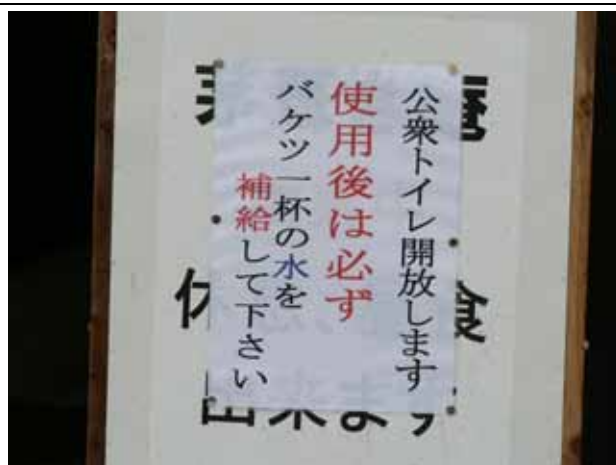 公衆トイレ開放します
使用後は必ず
バケツ一杯の水を
補給して下さい
出来ます